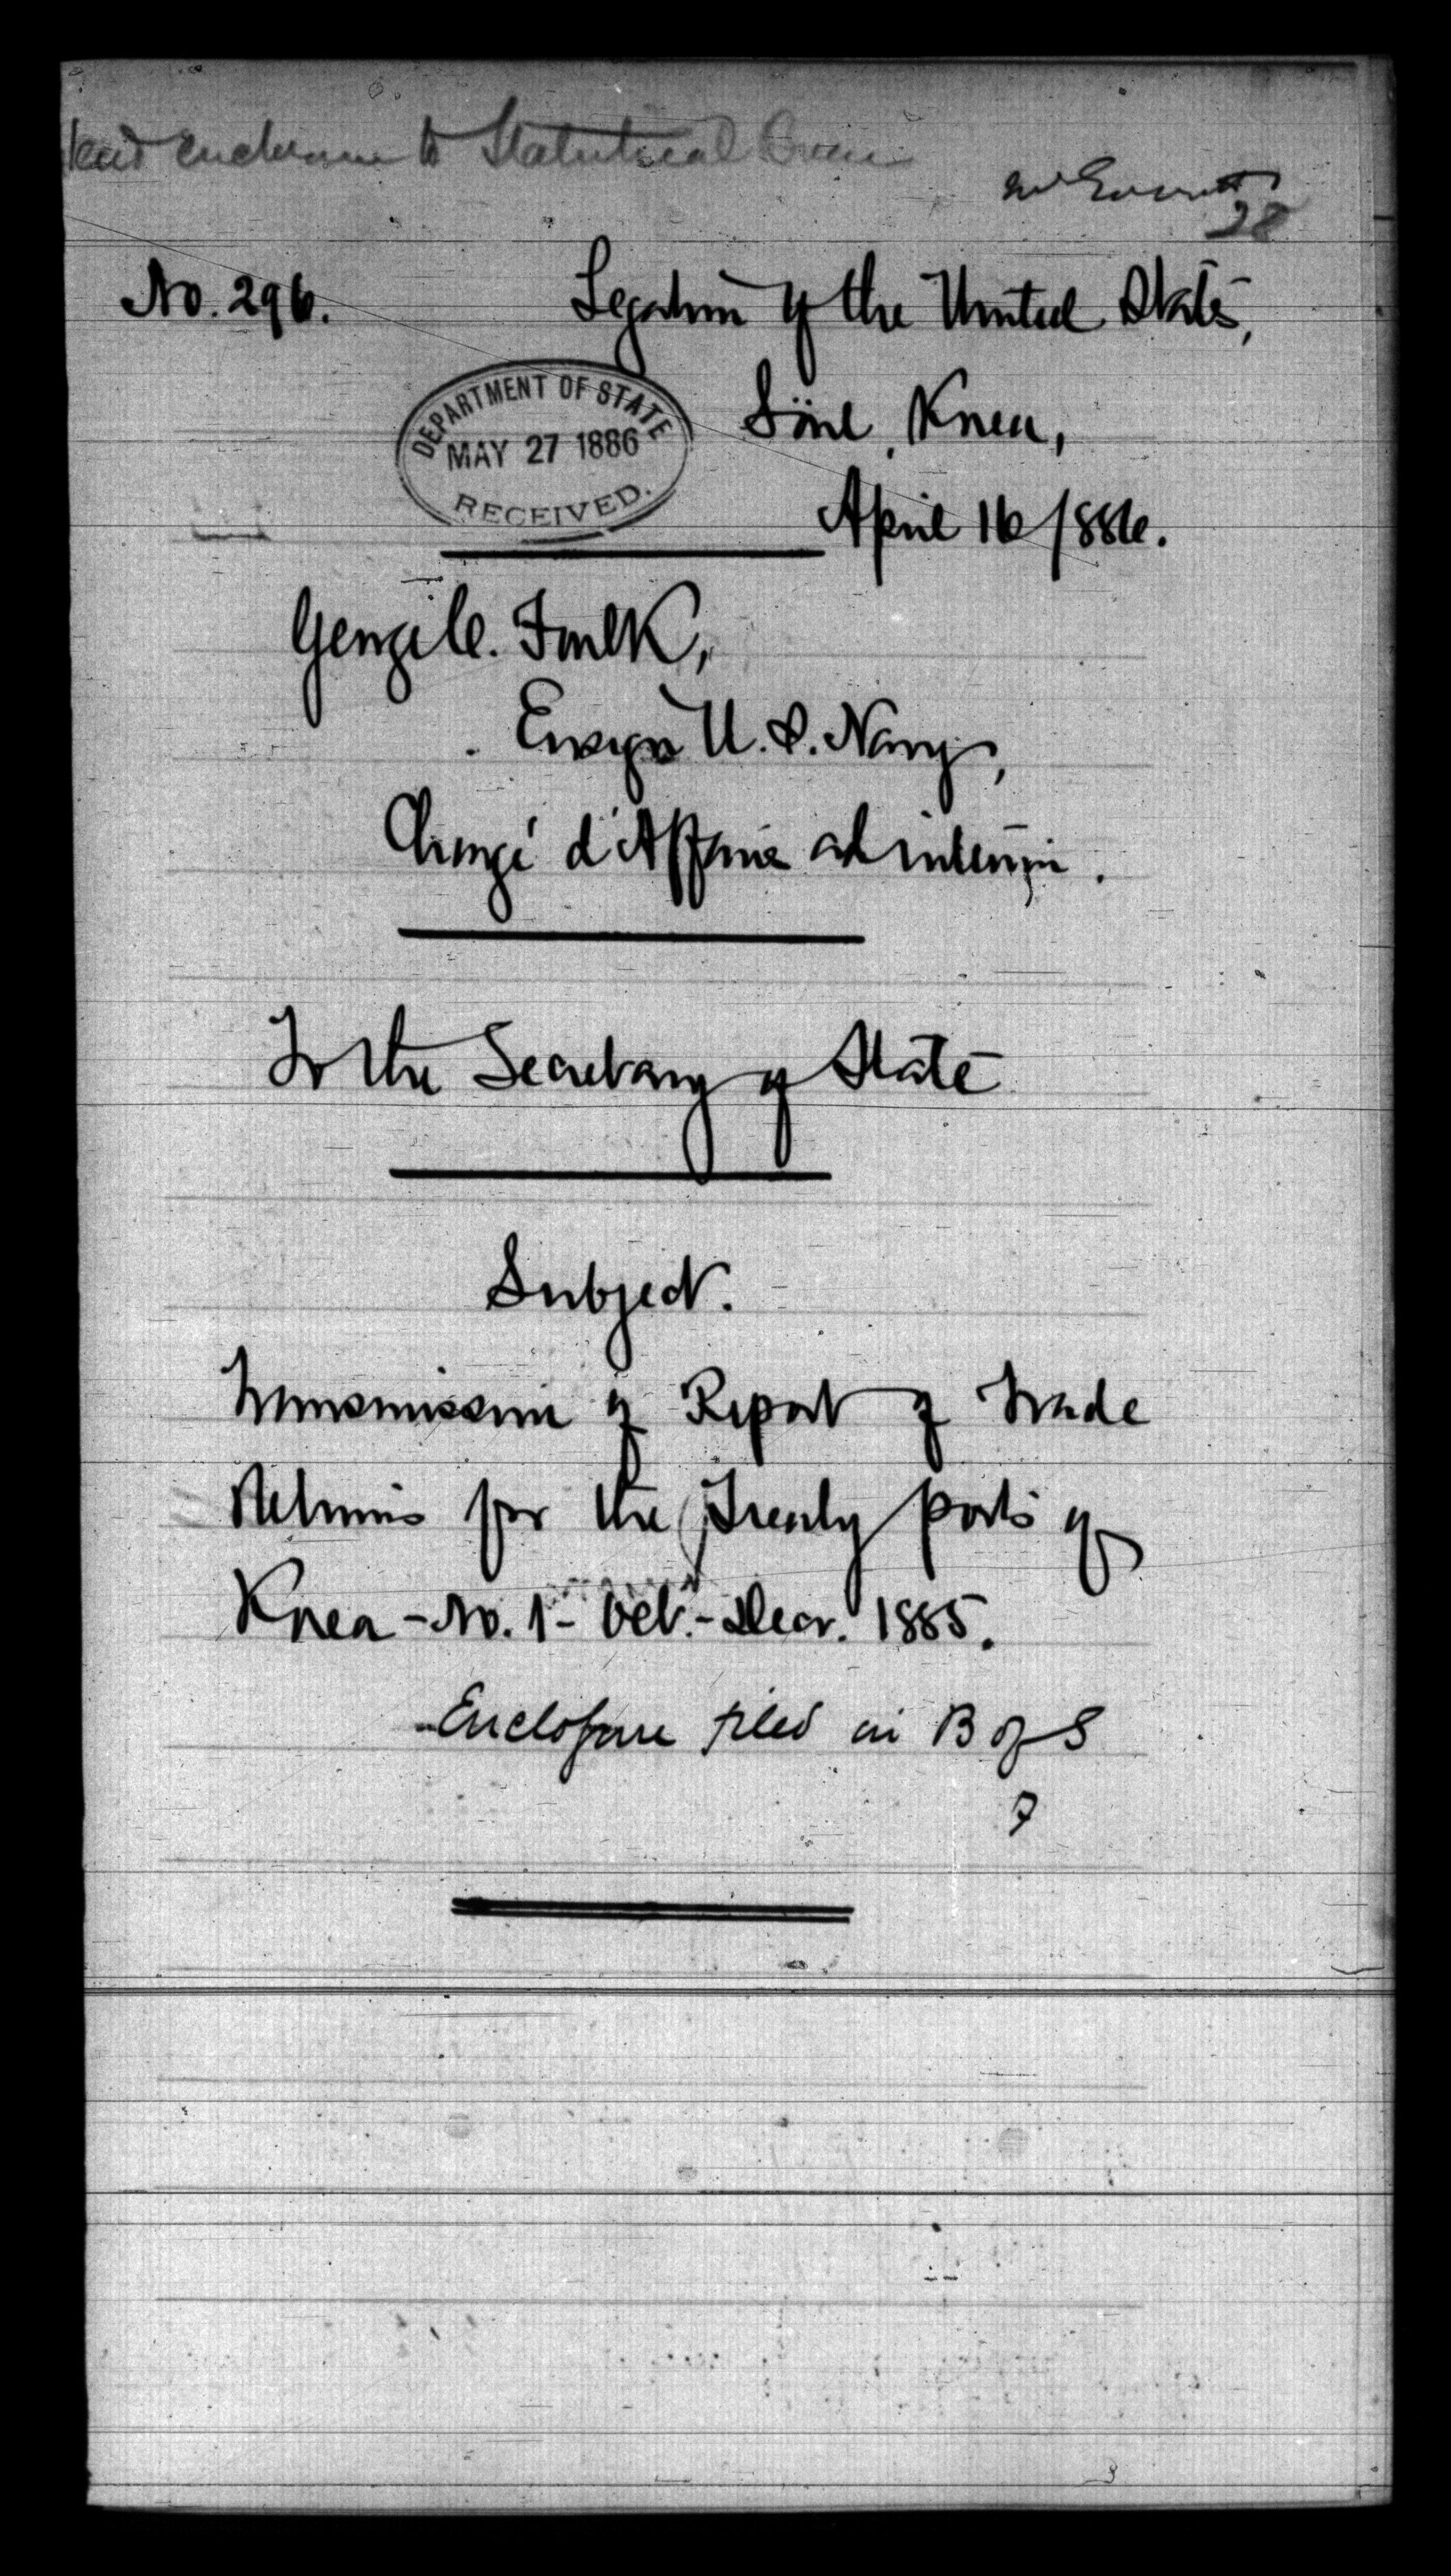 enclosure to Statistical
28
No. 296.
Legation of the United States,
DEPARTMENT OF STATE
MAY 27 1886
RECEIVED.
Söul, Korea,
April 16 1886.
George C. Foulk,
Ensign U.S. Navy,
Chargé d'Affaires ad interim.
To the Secretary of State
Subject.
Transmission of Report of Trade
Returns for the Treaty ports of
Korea - No. 1 - Oct. - Decr. 1885.
Enclosure filed in B of S
7